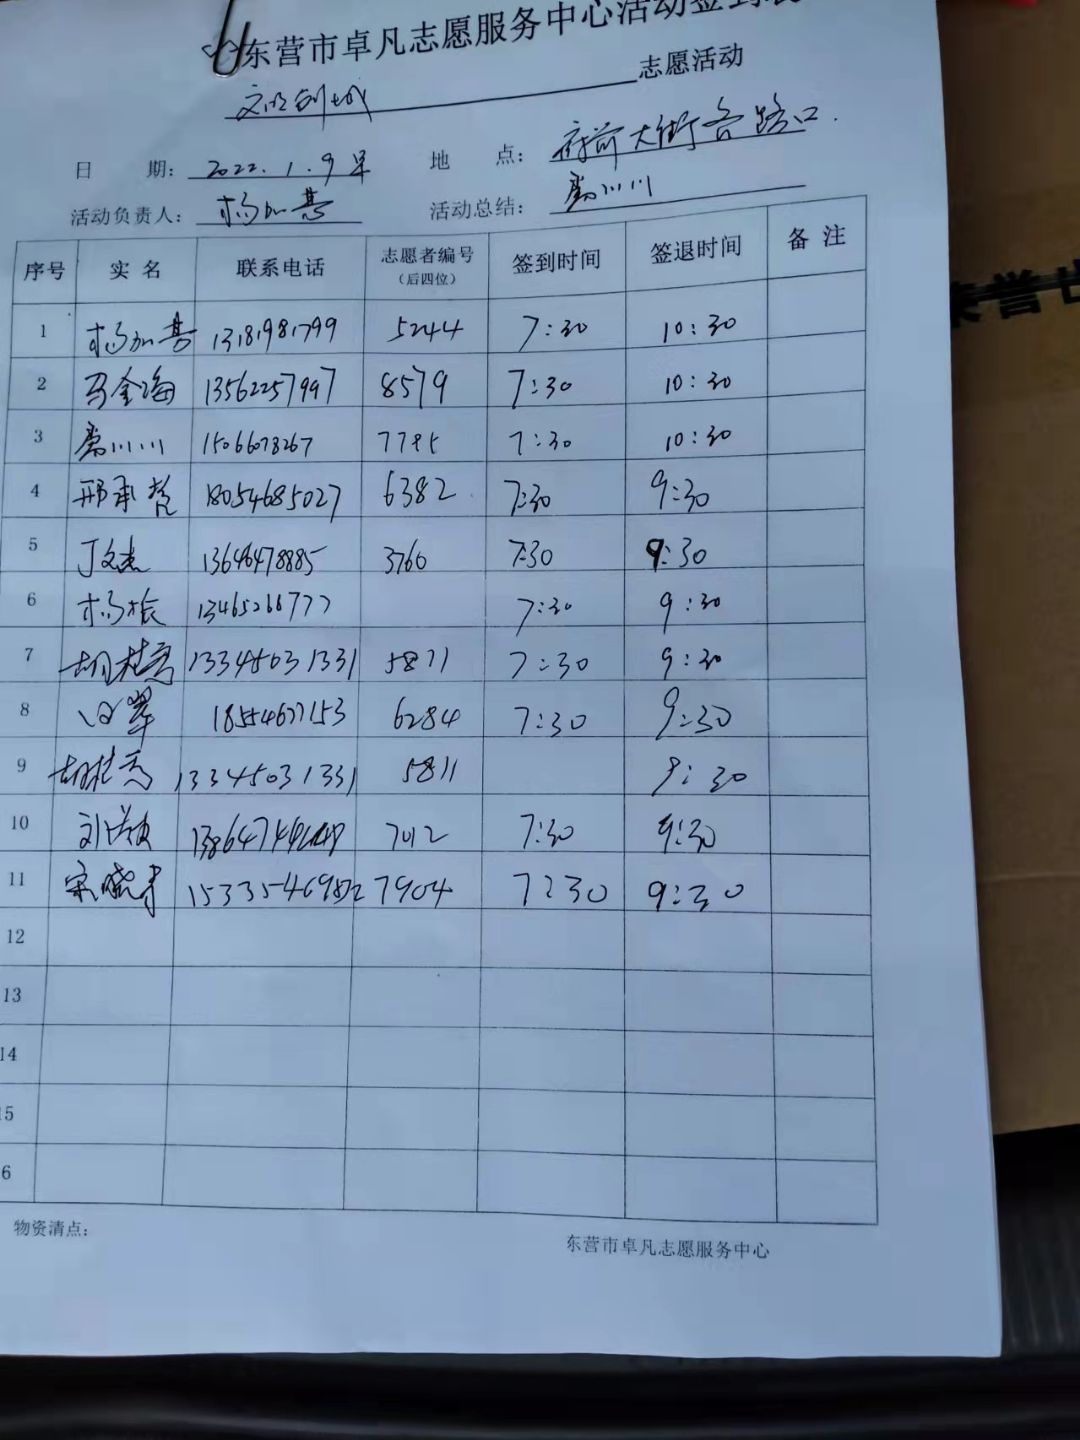 东营市卓凡志愿服务中心活动签到表
文明创城 志愿活动
日 期： 2022.1.9早 地 点： 府前大街各路口.
活动负责人： 杨加慧 活动总结：
序号 实 名 联系电话 志愿者编号（后四位） 签到时间 签退时间 备 注
1 杨加慧 13181981799 5244 7:30 10:30
2 马金海 13562257997 8579 7:30 10:30
3 15066073267 7785 7:30 10:30
4 邢承哲 18054685027 6382 7:30 9:30
5 丁文杰 13646478885 3760 7:30 9:30
6 杨振 13465266777 7:30 9:30
7 胡桂亮 13345031331 5811 7:30 9:30
8 18554677153 6284 7:30 9:30
9 胡桂亮 13345031331 5811 9:30
10 7012 7:30 9:30
11 宋晓青 15335469872 7904 7:30 9:30
12
13
14
15
16
物资清点：
东营市卓凡志愿服务中心